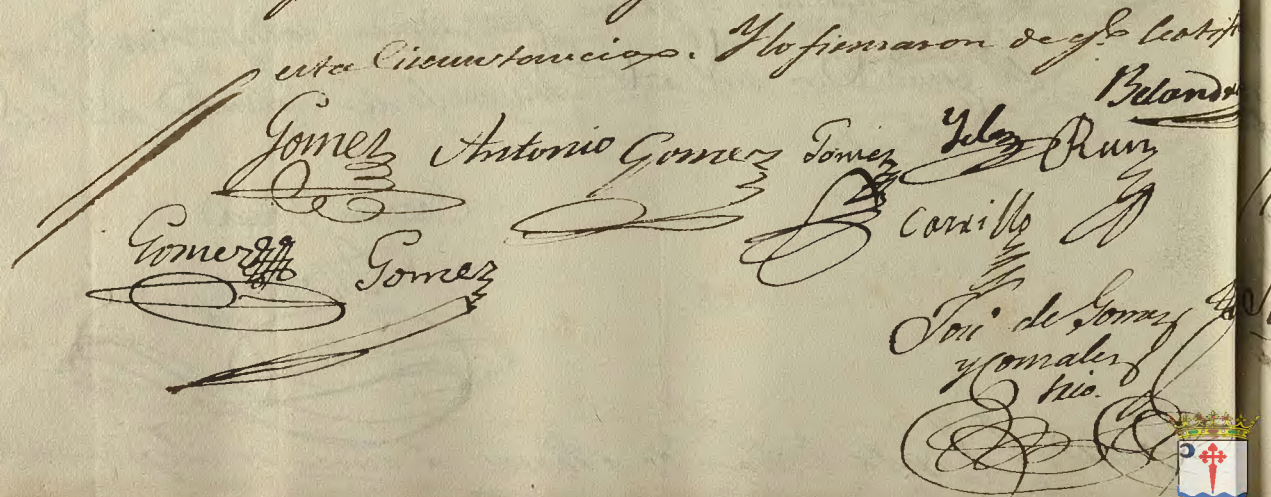 esta Circunstancia. Y lo firmaron de q.e Certif
Beland
Gomez Antonio Gomez Gomez Yelo Ruiz
Carrillo
Gomez Gomez
José de Gomez
y Gonzalez
Srio.